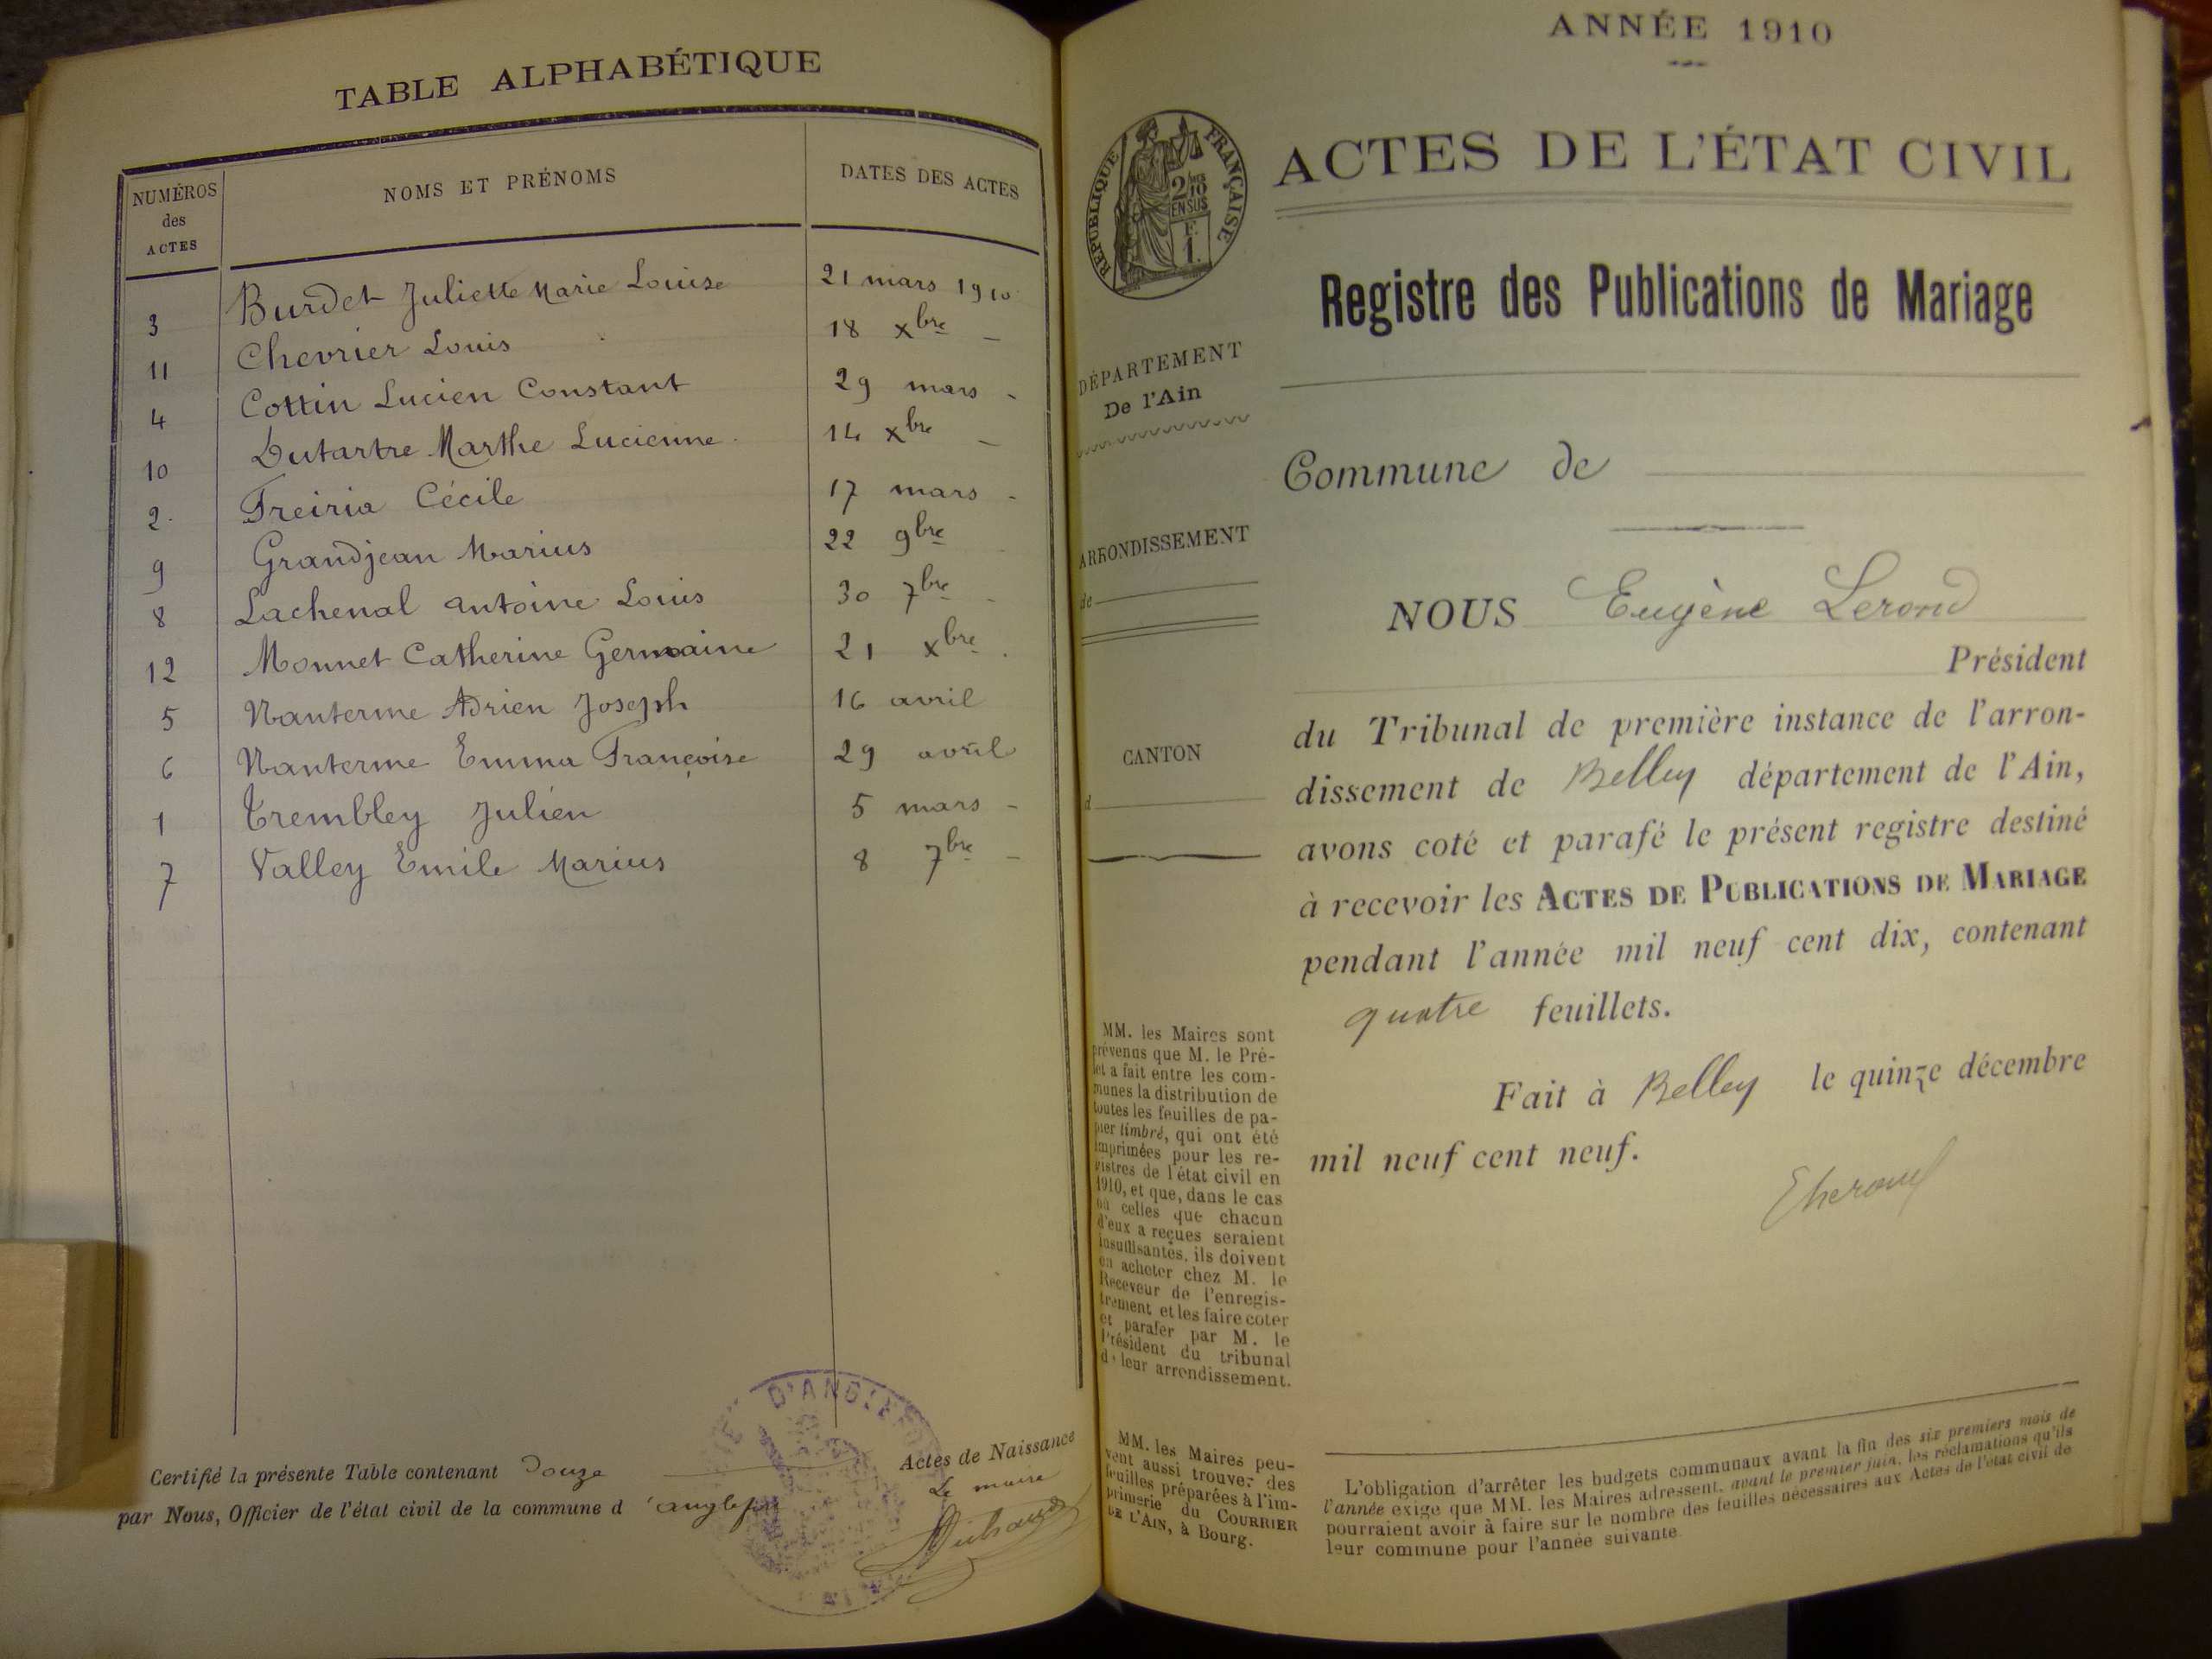 TABLE ALPHABÉTIQUE
NUMÉROS
des
ACTES
NOMS ET PRÉNOMS
DATES DES ACTES
3 Burdet Juliette Marie Louise 21 mars 1910
11 Chevrier Louis 18 xbre –
4 Cottin Lucien Constant 29 mars -
10 Dutartre Marthe Lucienne 14 xbre –
2 Freiria Cécile 17 mars -
9 Grandjean Marius 22 9bre
8 Lachenal Antoine Louis 30 7bre -
12 Monnet Catherine Germaine 21 xbre
5 Nanterme Adrien Joseph 16 avril
6 Nanterme Emma Françoise 29 avril
1 Trembley Julien 5 mars -
7 Valley Emile Marius 8 7bre –
Certifié la présente Table contenant Douze Actes de Naissance
par Nous, Officier de l'état civil de la commune d'anglefort
Le maire
D'ANGLEFO
ANNÉE 1910
RÉPUBLIQUE FRANÇAISE
2/10
EN SUS
F.
1.
ACTES DE L'ÉTAT CIVIL
Registre des Publications de Mariage
DÉPARTEMENT
De l'Ain
ARRONDISSEMENT
de
CANTON
d
MM. les Maires sont
prévenus que M. le Pré-
fet a fait entre les com-
munes la distribution de
toutes les feuilles de pa-
pier timbré, qui ont été
imprimées pour les re-
gistres de l'état civil en
1910, et que, dans le cas
où celles que chacun
d'eux a reçues seraient
insuffisantes, ils doivent
en acheter chez M. le
Receveur de l'enregis-
trement et les faire coter
et parafer par M. le
Président du tribunal
de leur arrondissement.
MM. les Maires peu-
vent aussi trouver des
feuilles préparées à l'im-
primerie du COURRIER
DE L'AIN, à Bourg.
Commune de
NOUS Eugène Lerond
Président
du Tribunal de première instance de l'arron-
dissement de Belley département de l'Ain,
avons coté et parafé le présent registre destiné
à recevoir les ACTES DE PUBLICATIONS DE MARIAGE
pendant l'année mil neuf cent dix, contenant
quatre feuillets.
Fait à Belley le quinze décembre
mil neuf cent neuf.
L'obligation d'arrêter les budgets communaux avant la fin des six premiers mois de
l'année exige que MM. les Maires adressent, avant le premier juin, les réclamations qu'ils
pourraient avoir à faire sur le nombre des feuilles nécessaires aux Actes de l'état civil de
leur commune pour l'année suivante